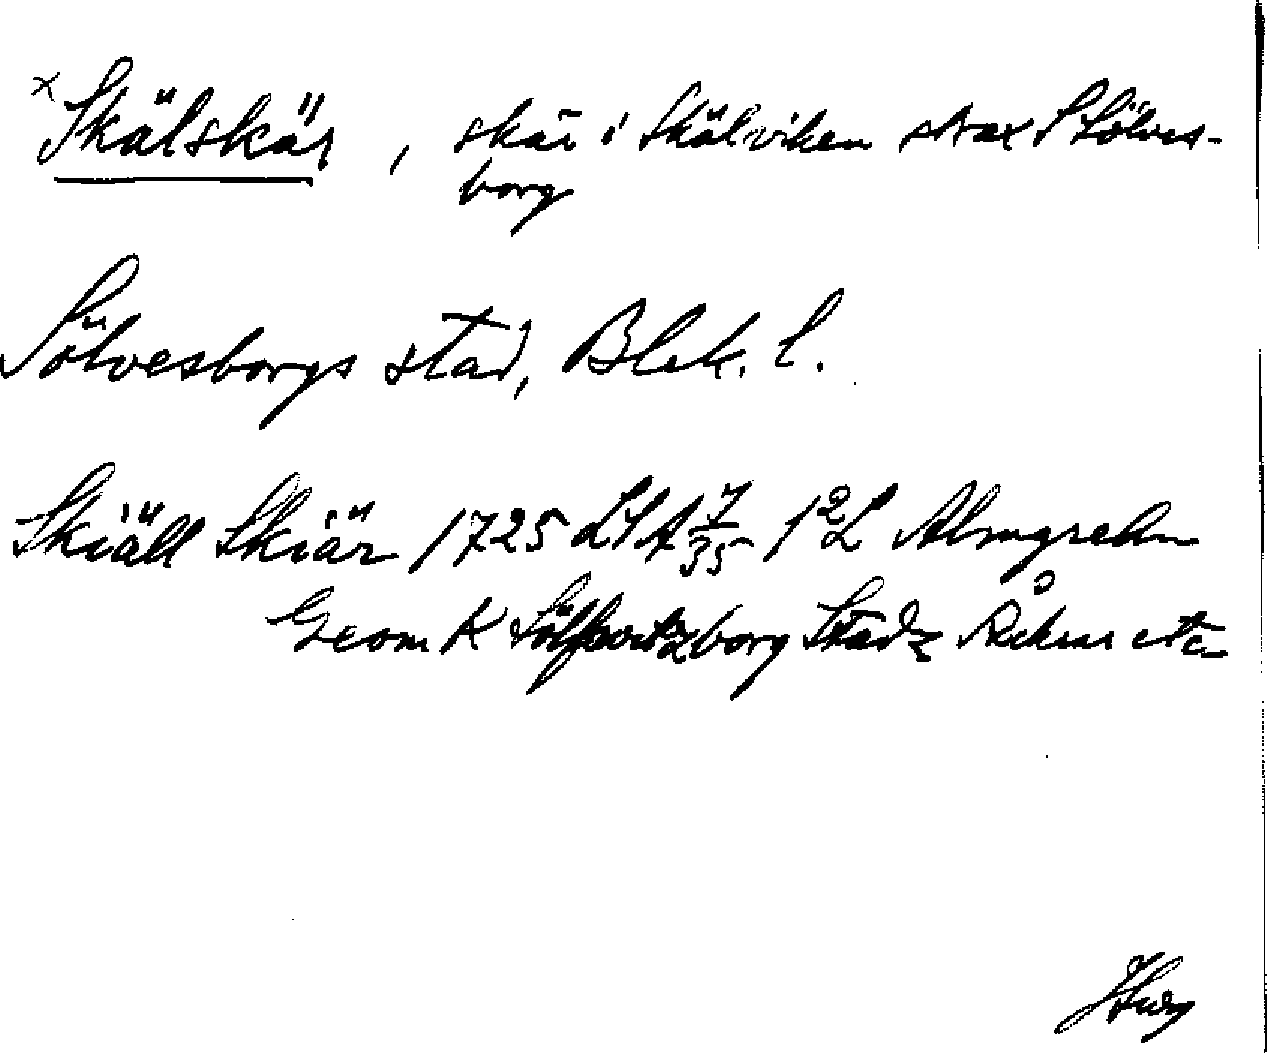 x Skälskär, skär i Skälviken strax S Sölves-
borg
Sölvesborgs stad, Blek. l.
Skiäll Skiär 1725 LSA 7/35 1:2 L Almgrehn
Geom K Stadz Åkrar etc